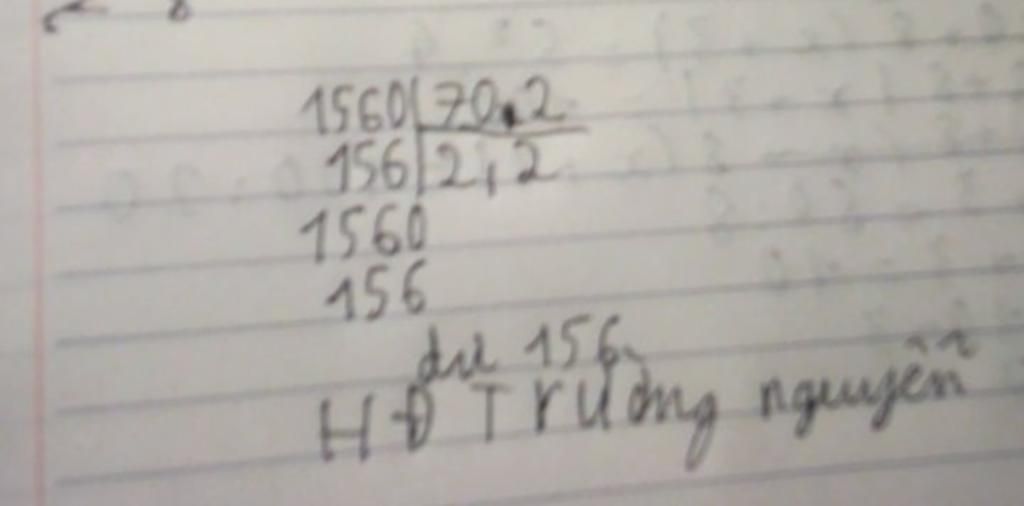 1560 70.2
156 2,2
1560
156
dư 156
HĐ Trường nguyễn